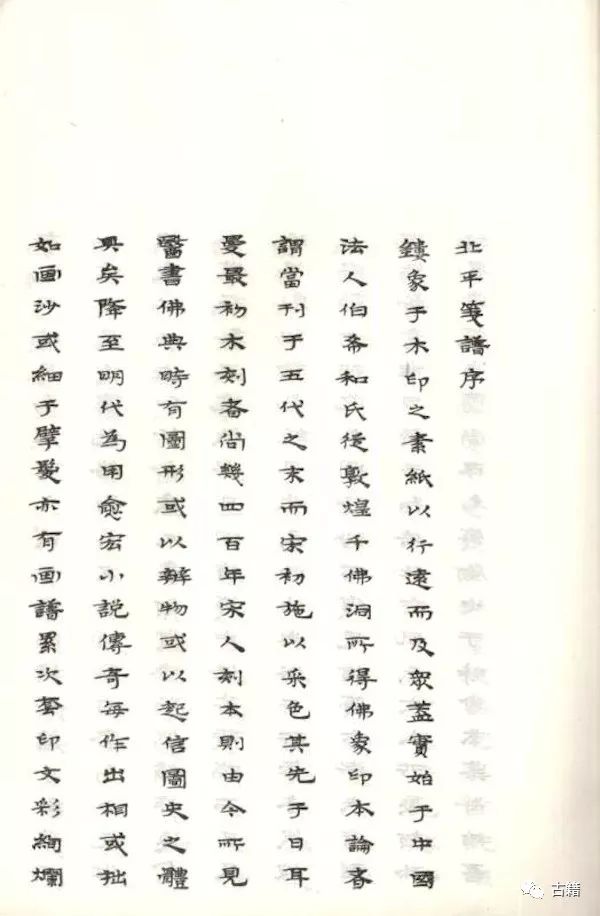 北平箋譜序
鏤象于木印之素紙以行遠而及眾蓋實始于中國
法人伯希和氏從敦煌千佛洞所得佛象印本論者
謂當刊于五代之末而宋初施以采色其先于日耳
曼最初木刻者尚幾四百年宋人刻本則由今所見
醫書佛典時有圖形或以辨物或以起信圖史之體
具矣降至明代為用愈宏小說傳奇每作出相或拙
如画沙或細于擘髮亦有画譜累次套印文彩絢爛
古籍